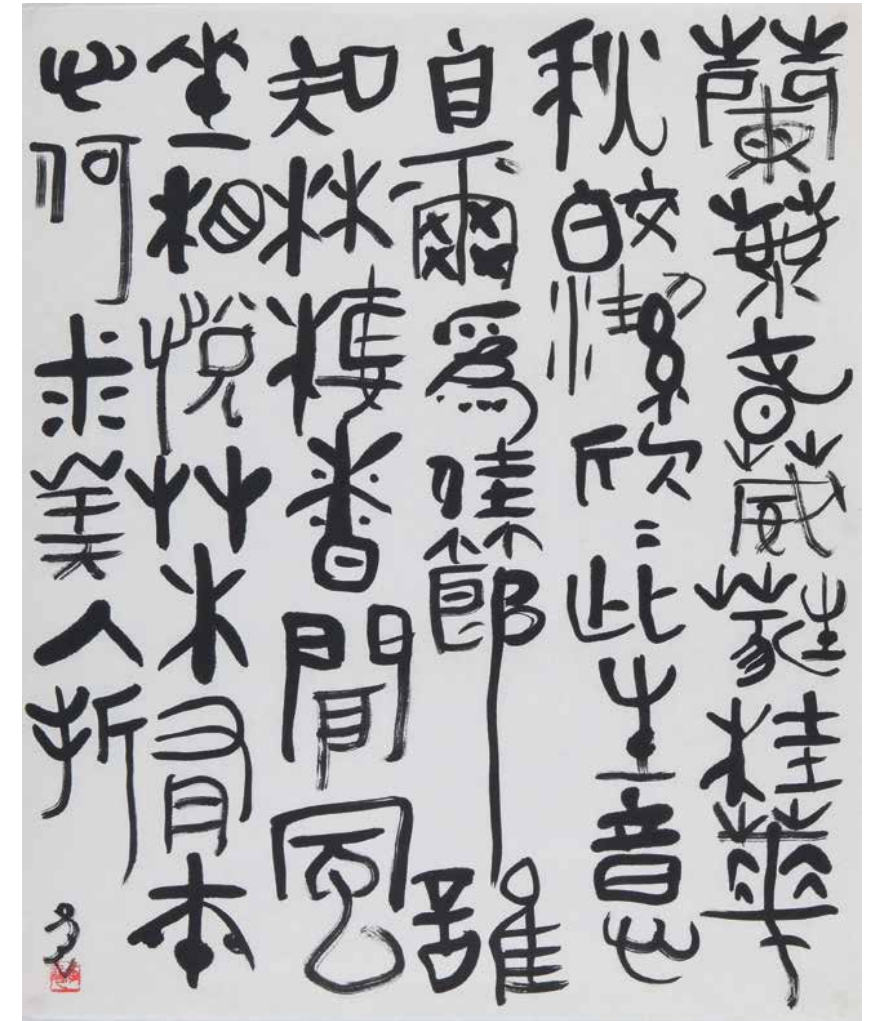 蘭葉春葳蕤桂華
秋皎潔欣〻此生意
自爾爲佳節誰
知林棲者聞風
坐相悅艸木有本
心何求美人折